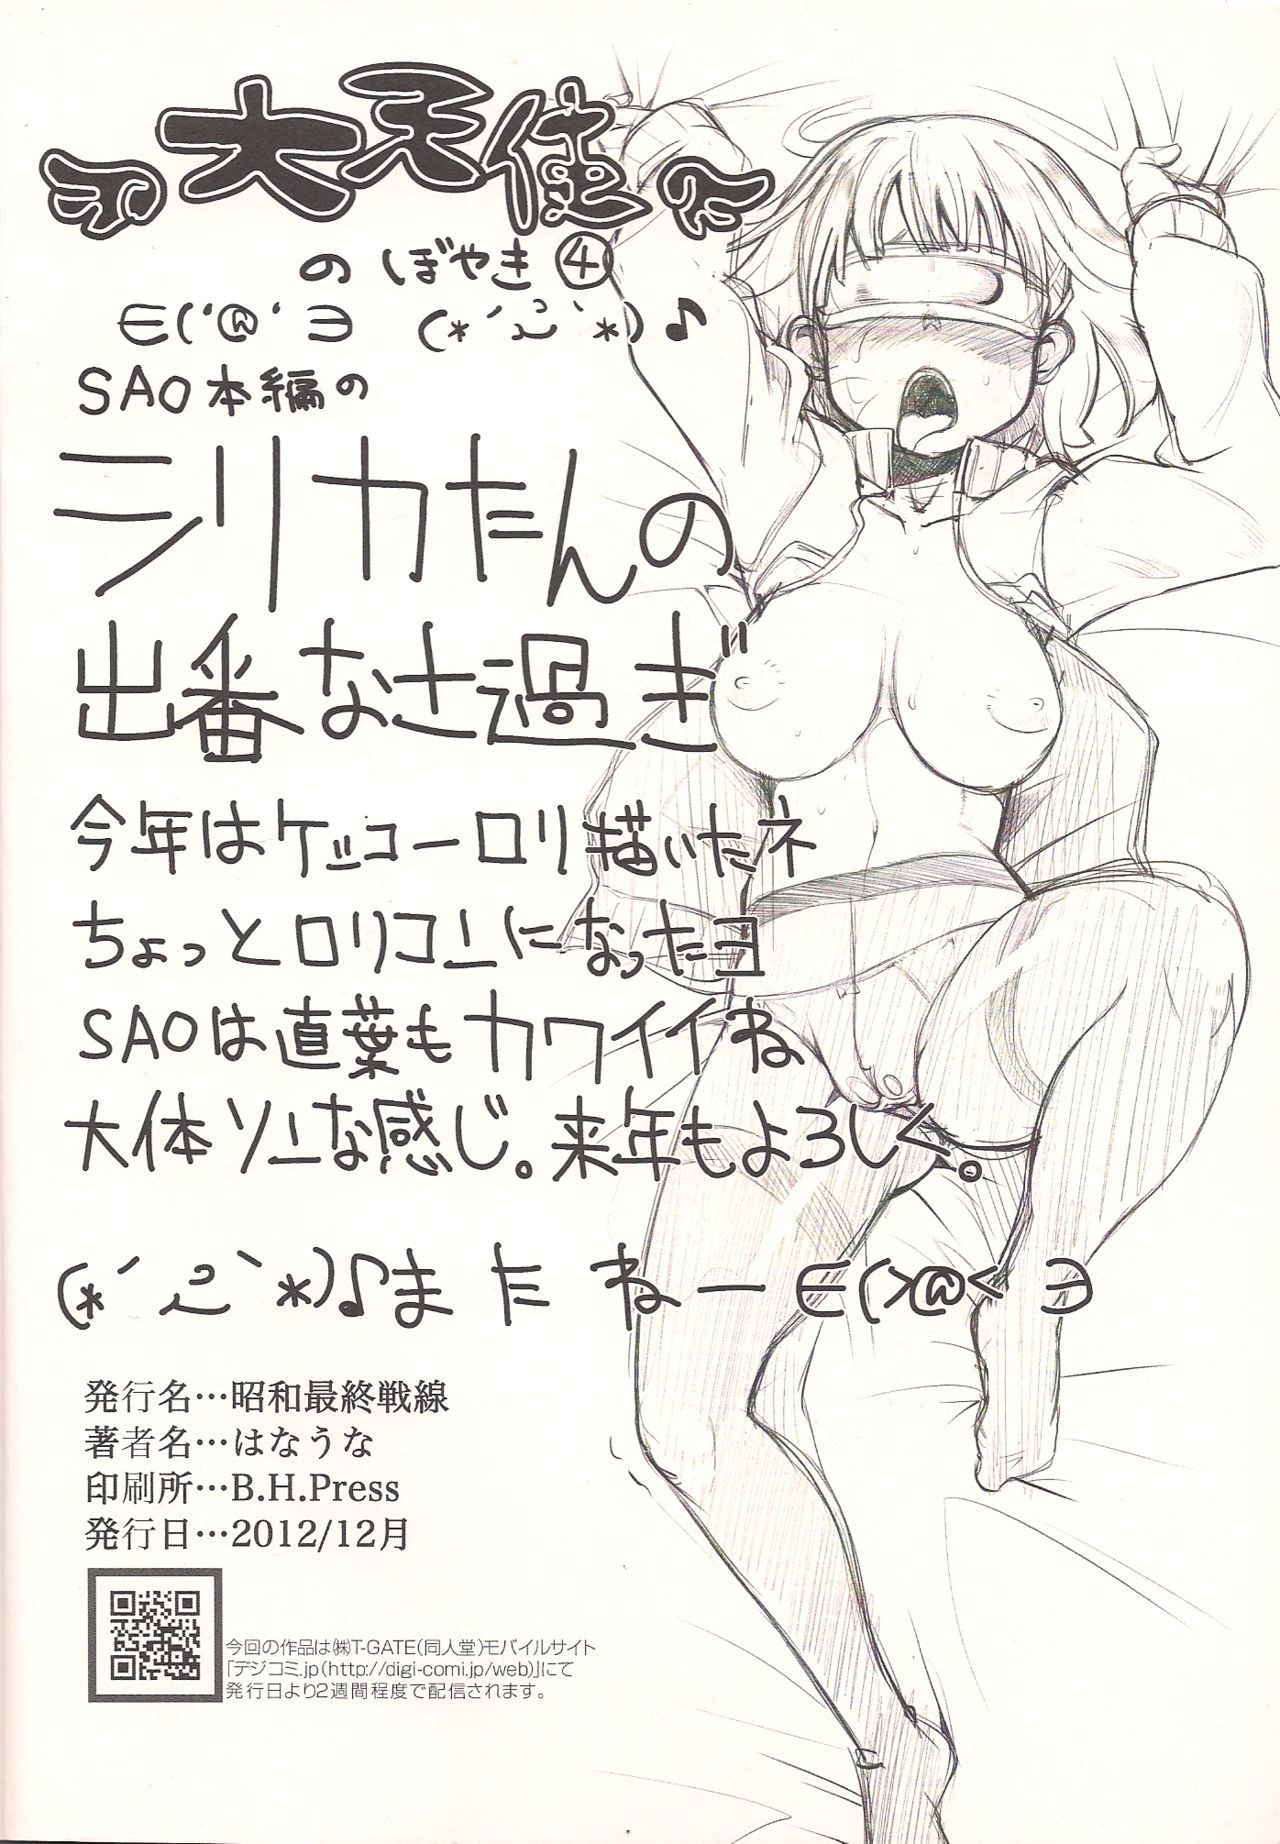 大天使
のぼやき④
∈('@'∋ (*´ω`*)♪
SAO本編の
シリカたんの
出番なさ過ぎ
今年はケッコーロリ描いたネ
ちょっとロリコンになったヨ
SAOは直葉もカワイイね
大体ソンな感じ。来年もよろしくー。
(*´ω`*)♪またねー∈(>@<∋
発行名…昭和最終戦線
著者名…はなうな
印刷所…B.H.Press
発行日…2012/12月
今回の作品は㈱T-GATE(同人堂)モバイルサイト
「デジコミ.jp(http://digi-comi.jp/web)」にて
発行日より2週間程度で配信されます。